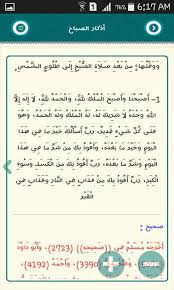 74% 6:17 AM
أذكار الصباح
ووقتها: من بعد صلاة الصبح إلى طلوع الشمس
1- أصبحنا وأصبح الملك لله، والحمد لله، لا إله إلا
الله وحده لا شريك له، له الملك وله الحمد، وهو
على كل شيء قدير، رب أسألك خير ما في هذا
اليوم وخير ما بعده، وأعوذ بك من شر ما في هذا
اليوم وشر ما بعده، رب أعوذ بك من الكسل وسوء
الكبر، رب أعوذ بك من عذاب في النار وعذاب في
القبر
صحيح :
أخرجه مسلم في ((صحيحه)) (2723)، وأبو داود
3390) وأحمد (4192)